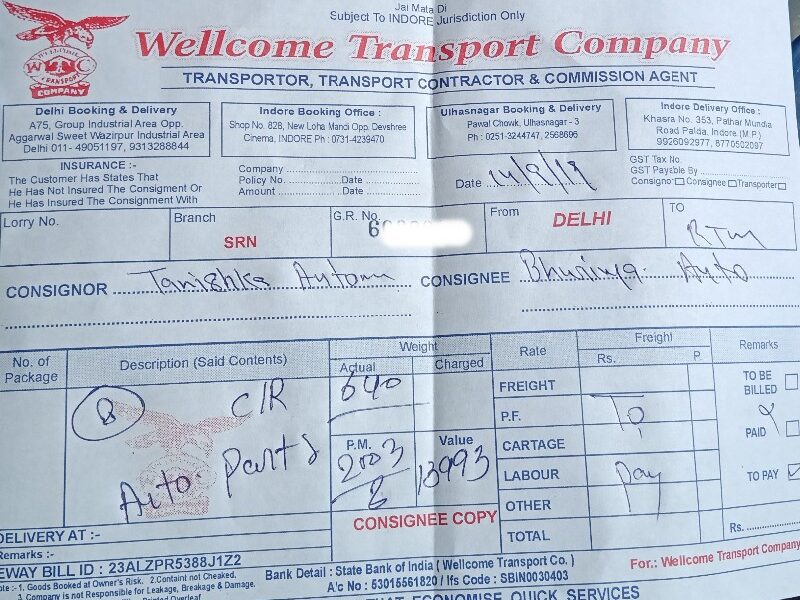 Jai Mata Di
Subject To INDORE Jurisdiction Only
Wellcome Transport Company
TRANSPORTOR, TRANSPORT CONTRACTOR & COMMISSION AGENT
W T C
TRANSPORT
COMPANY
Delhi Booking & Delivery
A75, Group Industrial Area Opp.
Aggarwal Sweet Wazirpur Industrial Area
Delhi 011- 49051197, 9313288844
Indore Booking Office :
Shop No. 82B, New Loha Mandi Opp. Devshree
Cinema, INDORE Ph : 0731-4239470
Ulhasnagar Booking & Delivery
Pawal Chowk, Ulhasnagar - 3
Ph : 0251-3244747, 2568696
Indore Delivery Office :
Khasra No. 353, Pathar Mundia
Road Palda, Indore (M.P.)
9926092977, 8770502097
INSURANCE :-
The Customer Has States That
He Has Not Insured The Consigment Or
He Has Insured The Consignment With
Company
Policy No. Date
Amount Date
Date
GST Tax No.
GST Payable By
Consigno Consignee Transporter
Lorry No.
Branch
SRN
G.R. No.
6
From
DELHI
TO
RTM
CONSIGNOR Tanishka Autom
CONSIGNEE Bhuriya Auto
No. of Package
Description (Said Contents)
Weight
Actual
Charged
Rate
Freight
Rs. P.
Remarks
8
C/R
Auto Parts
640
P.M.
2003
8
Value
13993
FREIGHT
P.F.
CARTAGE
LABOUR
OTHER
TOTAL
To
Pay
TO BE BILLED
PAID
TO PAY
Rs.
CONSIGNEE COPY
DELIVERY AT :-
Remarks :-
EWAY BILL ID : 23ALZPR5388J1Z2
Note :- 1. Goods Booked at Owner's Risk. 2.Containt not Cheaked.
3. Company is not Responsible for Leakage, Breakage & Damage.
Bank Detail : State Bank of India ( Wellcome Transport Co. )
A/c No : 53015561820 / Ifs Code : SBIN0030403
For.: Wellcome Transport Company
THAT ECONOMISE QUICK SERVICES